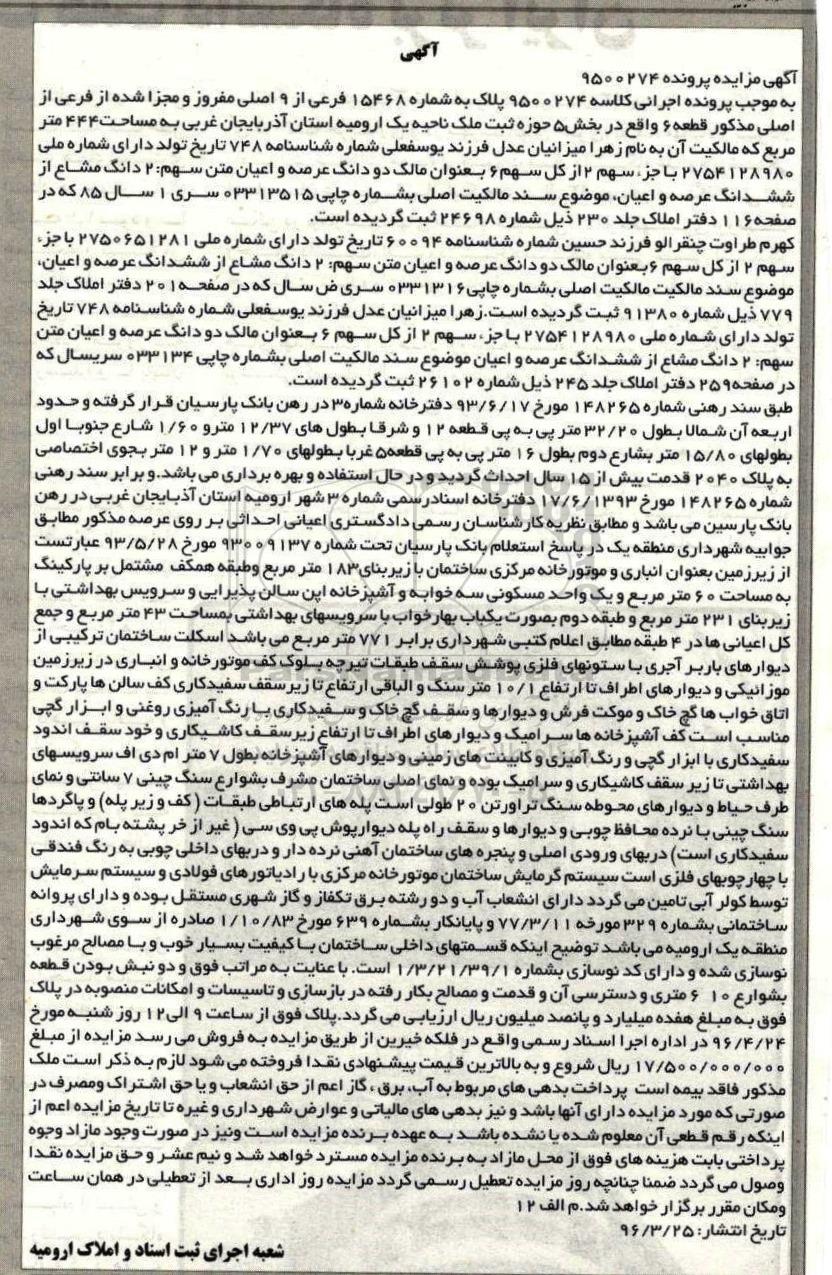 آگهی
آگهی مزایده پرونده ۹۵۰۰۲۷۴
به موجب پرونده اجرائی کلاسه ۹۵۰۰۲۷۴ پلاک به شماره ۱۵۴۶۸ فرعی از ۹ اصلی مفروز و مجزا شده از فرعی از
اصلی مذکور قطعه۶ واقع در بخش۵ حوزه ثبت ملک ناحیه یک ارومیه استان آذربایجان غربی به مساحت۴۴۴ متر
مربع که مالکیت آن به نام زهرا میزانیان عدل فرزند یوسفعلی شماره شناسنامه ۷۴۸ تاریخ تولد دارای شماره ملی
۲۷۵۴۱۲۸۹۸۰ با جزء سهم ۲ از کل سهم۶ بعنوان مالک دو دانگ عرصه و اعیان متن سهم: ۲ دانگ مشاع از
ششدانگ عرصه و اعیان، موضوع سند مالکیت اصلی بشماره چاپی ۰۳۳۱۳۵۱۵ سری ۱ سال ۸۵ که در
صفحه۱۱۶ دفتر املاک جلد ۲۳۰ ذیل شماره ۲۴۶۹۸ ثبت گردیده است.
کهرم طراوت چنقرالو فرزند حسین شماره شناسنامه ۶۰۰۹۴ تاریخ تولد دارای شماره ملی ۲۷۵۰۶۵۱۲۸۱ با جزء
سهم ۲ از کل سهم ۶ بعنوان مالک دو دانگ عرصه و اعیان متن سهم: ۲ دانگ مشاع از ششدانگ عرصه و اعیان،
موضوع سند مالکیت مالکیت اصلی بشماره چاپی۰۳۳۱۳۱۶ سری ض سال که در صفحه۲۰۱ دفتر املاک جلد
۷۷۹ ذیل شماره ۹۱۳۸۰ ثبت گردیده است.زهرا میزانیان عدل فرزند یوسفعلی شماره شناسنامه ۷۴۸ تاریخ
تولد دارای شماره ملی ۲۷۵۴۱۲۸۹۸۰ با جزء سهم ۲ از کل سهم ۶ بعنوان مالک دو دانگ عرصه و اعیان متن
سهم: ۲ دانگ مشاع از ششدانگ عرصه و اعیان موضوع سند مالکیت اصلی بشماره چاپی ۰۳۳۱۳۴ سریسال که
در صفحه۲۵۹ دفتر املاک جلد ۲۴۵ ذیل شماره ۲۶۱۰۲ ثبت گردیده است.
طبق سند رهنی شماره ۱۴۸۲۶۵ مورخ ۹۳/۶/۱۷ دفترخانه شماره۳ در رهن بانک پارسیان قرار گرفته و حدود
اربعه آن شمالا بطول ۳۲/۲۰ متر پی به پی قطعه ۱۲ و شرقا بطول های ۱۲/۳۷ مترو ۱/۶۰ شارع جنوبا اول
بطولهای ۱۵/۸۰ متر بشارع دوم بطول ۱۶ متر پی به پی قطعه۵ غربا بطولهای ۱/۷۰ متر و ۱۲ متر بجوی اختصاصی
به پلاک ۲۰۴۰ قدمت بیش از ۱۵ سال احداث گردید و در حال استفاده و بهره برداری می باشد.و برابر سند رهنی
شماره ۱۴۸۲۶۵ مورخ ۱۷/۶/۱۳۹۳ دفترخانه اسنادرسمی شماره ۳ شهر ارومیه استان آذبایجان غربی در رهن
بانک پارسین می باشد و مطابق نظریه کارشناسان رسمی دادگستری اعیانی احداثی بر روی عرصه مذکور مطابق
جوابیه شهرداری منطقه یک در پاسخ استعلام بانک پارسیان تحت شماره ۹۳۰۰۹۱۳۷ مورخ ۹۳/۵/۲۸ عبارتست
از زیرزمین بعنوان انباری و موتورخانه مرکزی ساختمان با زیربنای۱۸۳ متر مربع وطبقه همکف مشتمل بر پارکینگ
به مساحت ۶۰ متر مربع و یک واحد مسکونی سه خوابه و آشپزخانه اپن سالن پذیرایی و سرویس بهداشتی با
زیربنای ۲۳۱ متر مربع و طبقه دوم بصورت یکباب بهارخواب با سرویسهای بهداشتی بمساحت ۴۳ متر مربع و جمع
کل اعیانی ها در ۴ طبقه مطابق اعلام کتبی شهرداری برابر ۷۷۱ متر مربع می باشد اسکلت ساختمان ترکیبی از
دیوارهای باربر آجری با ستونهای فلزی پوشش سقف طبقات تیرچه بلوک کف موتورخانه و انباری در زیرزمین
موزائیکی و دیوارهای اطراف تا ارتفاع ۱۰/۱ متر سنگ و الباقی ارتفاع تا زیرسقف سفیدکاری کف سالن ها پارکت و
اتاق خواب ها گچ خاک و موکت فرش و دیوارها و سقف گچ خاک و سفیدکاری با رنگ آمیزی روغنی و ابزار گچی
مناسب است کف آشپزخانه ها سرامیک و دیوارهای اطراف تا ارتفاع زیرسقف کاشیکاری و خود سقف اندود
سفیدکاری با ابزار گچی و رنگ آمیزی و کابینت های زمینی و دیوارهای آشپزخانه بطول ۷ متر ام دی اف سرویسهای
بهداشتی تا زیر سقف کاشیکاری و سرامیک بوده و نمای اصلی ساختمان مشرف بشوارع سنگ چینی ۷ سانتی و نمای
طرف حیاط و دیوارهای محوطه سنگ تراورتن ۲۰ طولی است پله های ارتباطی طبقات ( کف و زیر پله) و پاگردها
سنگ چینی با نرده محافظ چوبی و دیوارها و سقف راه پله دیوارپوش پی وی سی ( غیر از خر پشته بام که اندود
سفیدکاری است) دربهای ورودی اصلی و پنجره های ساختمان آهنی نرده دار و دربهای داخلی چوبی به رنگ فندقی
با چهارچوبهای فلزی است سیستم گرمایش ساختمان موتورخانه مرکزی با رادیاتورهای فولادی و سیستم سرمایش
توسط کولر آبی تامین می گردد دارای انشعاب آب و دو رشته برق تکفاز و گاز شهری مستقل بوده و دارای پروانه
ساختمانی بشماره ۳۲۹ مورخه ۷۷/۳/۱۱ و پایانکار بشماره ۶۳۹ مورخ ۱/۱۰/۸۳ صادره از سوی شهرداری
منطقه یک ارومیه می باشد توضیح اینکه قسمتهای داخلی ساختمان با کیفیت بسیار خوب و با مصالح مرغوب
نوسازی شده و دارای کد نوسازی بشماره ۱/۳/۲۱/۳۹/۱ است. با عنایت به مراتب فوق و دو نبش بودن قطعه
بشوارع ۱۰ ۶ متری و دسترسی آن و قدمت و مصالح بکار رفته در بازسازی و تاسیسات و امکانات منصوبه در پلاک
فوق به مبلغ هفده میلیارد و پانصد میلیون ریال ارزیابی می گردد.پلاک فوق از ساعت ۹ الی۱۲ روز شنبه مورخ
۹۶/۴/۲۴ در اداره اجرا اسناد رسمی واقع در فلکه خیرین از طریق مزایده به فروش می رسد مزایده از مبلغ
۱۷/۵۰۰/۰۰۰/۰۰۰ ریال شروع و به بالاترین قیمت پیشنهادی نقدا فروخته می شود لازم به ذکر است ملک
مذکور فاقد بیمه است پرداخت بدهی های مربوط به آب، برق ، گاز اعم از حق انشعاب و یا حق اشتراک ومصرف در
صورتی که مورد مزایده دارای آنها باشد و نیز بدهی های مالیاتی و عوارض شهرداری و غیره تا تاریخ مزایده اعم از
اینکه رقم قطعی آن معلوم شده یا نشده باشد به عهده برنده مزایده است ونیز در صورت وجود مازاد وجوه
پرداختی بابت هزینه های فوق از محل مازاد به برنده مزایده مسترد خواهد شد و نیم عشر و حق مزایده نقدا
وصول می گردد ضمنا چنانچه روز مزایده تعطیل رسمی گردد مزایده روز اداری بعد از تعطیلی در همان ساعت
ومکان مقرر برگزار خواهد شد.م الف ۱۲
تاریخ انتشار: ۹۶/۳/۲۵
شعبه اجرای ثبت اسناد و املاک ارومیه